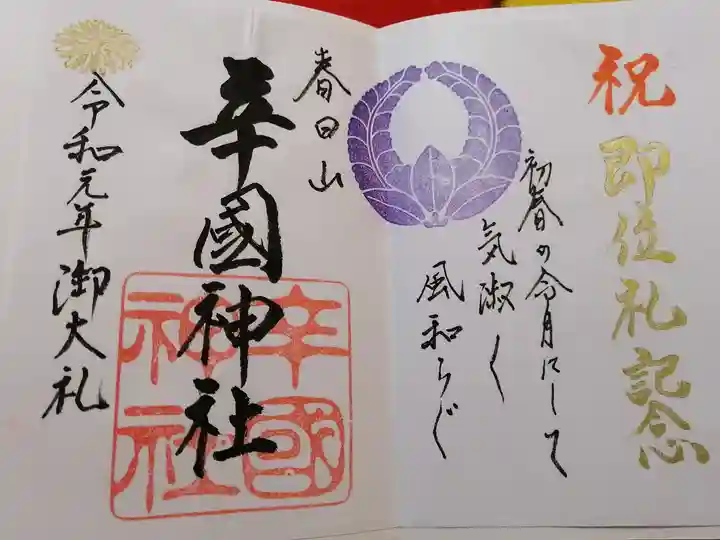 祝
即位礼記念
初春の令月にして
気淑く
風和らぐ
春日山
辛國神社
辛國神社
令和元年御大礼